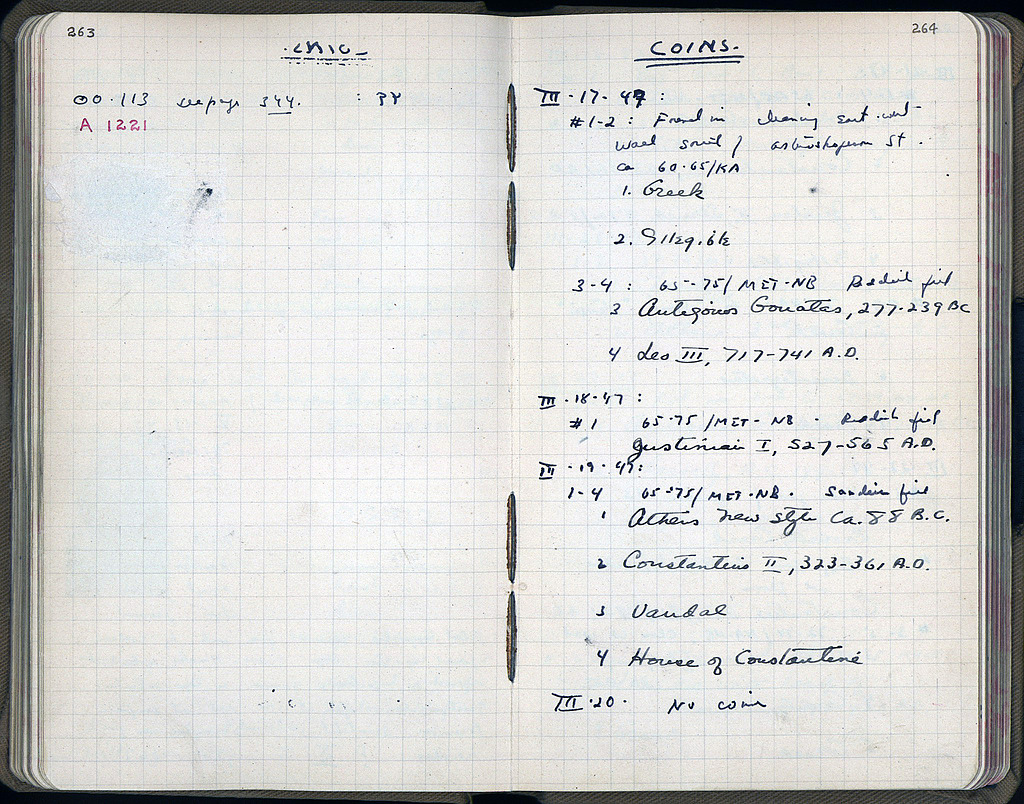 263
OO·113 see page 344. : PY
A 1221
264
COINS.
III·17·47 :
#1-2 : Found in cleaning east-west
wall south of St.
ca 60·65/KA
1. Greek
2. Illegible
3-4 : 65-75/MET-NB Reddish fill
3 Antigonos Gonatas, 277-239 BC
4 Leo III, 717-741 A.D.
III·18·47 :
#1 65-75/MET-NB · Reddish fill
Justinian I, 527-565 A.D.
III·19·47:
1-4 65-75/MET-NB. fill
1 Athens New Style Ca. 88 B.C.
2 Constantius II, 323-361 A.D.
3 Vandal
4 House of Constantine
III·20· No coins